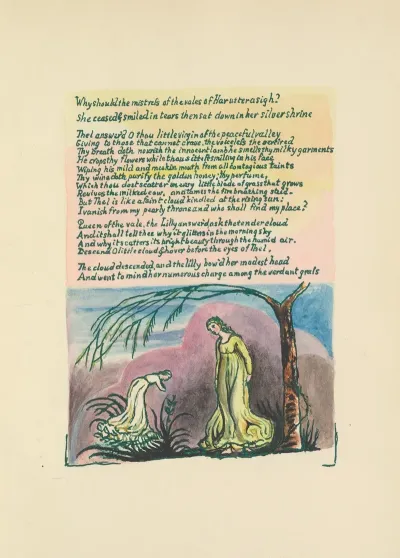 Why should the mistress of the vales of Har utter a sigh?
She ceasd & smiled in tears, then sat down in her silver shrine
Thel answerd O thou little virgin of the peaceful valley
Giving to those that cannot crave, the voiceless the o'ertired
Thy breath doth nourish the innocent lamb he smells thy milky garments
He crops thy flowers while thou sittest smiling in his face
Wiping his mild and meekin mouth from all contagious taints
Thy wine doth purify the golden honey; thy perfume,
Which thou dost scatter on every little blade of grass that grows
Revives the milked cow, and tames the fire breathing steed.
But Thel is like a faint cloud kindled at the rising sun:
I vanish from my pearly throne and who shall find my place?
Queen of the vale, the Lilly answerd, ask the tender cloud
And it shall tell thee why it glitters in the morning sky
And why it scatters its bright beauty through the humid air.
Descend O little cloud & hover before the eyes of Thel.
The cloud descended and the lilly bow'd her modest head
And went to mind her numerous charge among the verdant grass